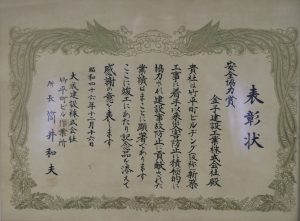 表彰状
安全協力賞
金子建設工業株式会社殿
貴社は竹平町ビルヂング(仮称)新築
工事の着手以来災害防止に積極的に
協力され建設事故防止に貢献された
業績はまことに顕著であります
ここに竣工にあたり記念品を添えて
感謝の意を表します
昭和四十六年十二月十六日
大成建設株式会社
竹平町ビル作業所
所長 筒井和夫